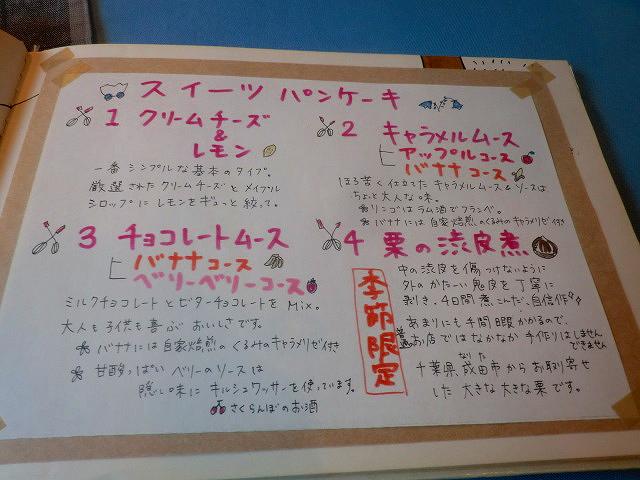 スイーツ パンケーキ
1 クリームチーズ
&
レモン
一番 シンプルな 基本のタイプ。
厳選された クリームチーズと メイプル
シロップに レモンを ギュッと 絞って。
2 キャラメルムース
アップルコース
バナナコース
ほろ苦く仕立てた キャラメルムース&ソースは
ちょっと大人な味。
リンゴは ラム酒でフランベ。
バナナには 自家焙煎のくるみのキャラメリゼ付き
3 チョコレートムース
バナナコース
ベリーベリーコース
ミルクチョコレートとビターチョコレートを Mix。
大人も子供も喜ぶ おいしさです。
バナナには自家焙煎の くるみのキャラメリゼ付き
甘酸っぱい ベリーのソースは
隠し味に キルシュワッサーを使っています。
さくらんぼのお酒
4 栗の渋皮煮
季節限定
中の渋皮を傷つけないように
外のかたーい鬼皮を丁寧に
剥き、4日間煮こんだ、自信作
あまりにも手間暇かかるので、
普通お店ではなかなか手作りはしません
できません
千葉県成田市からお取り寄せ
なりた
した 大きな大きな栗です。